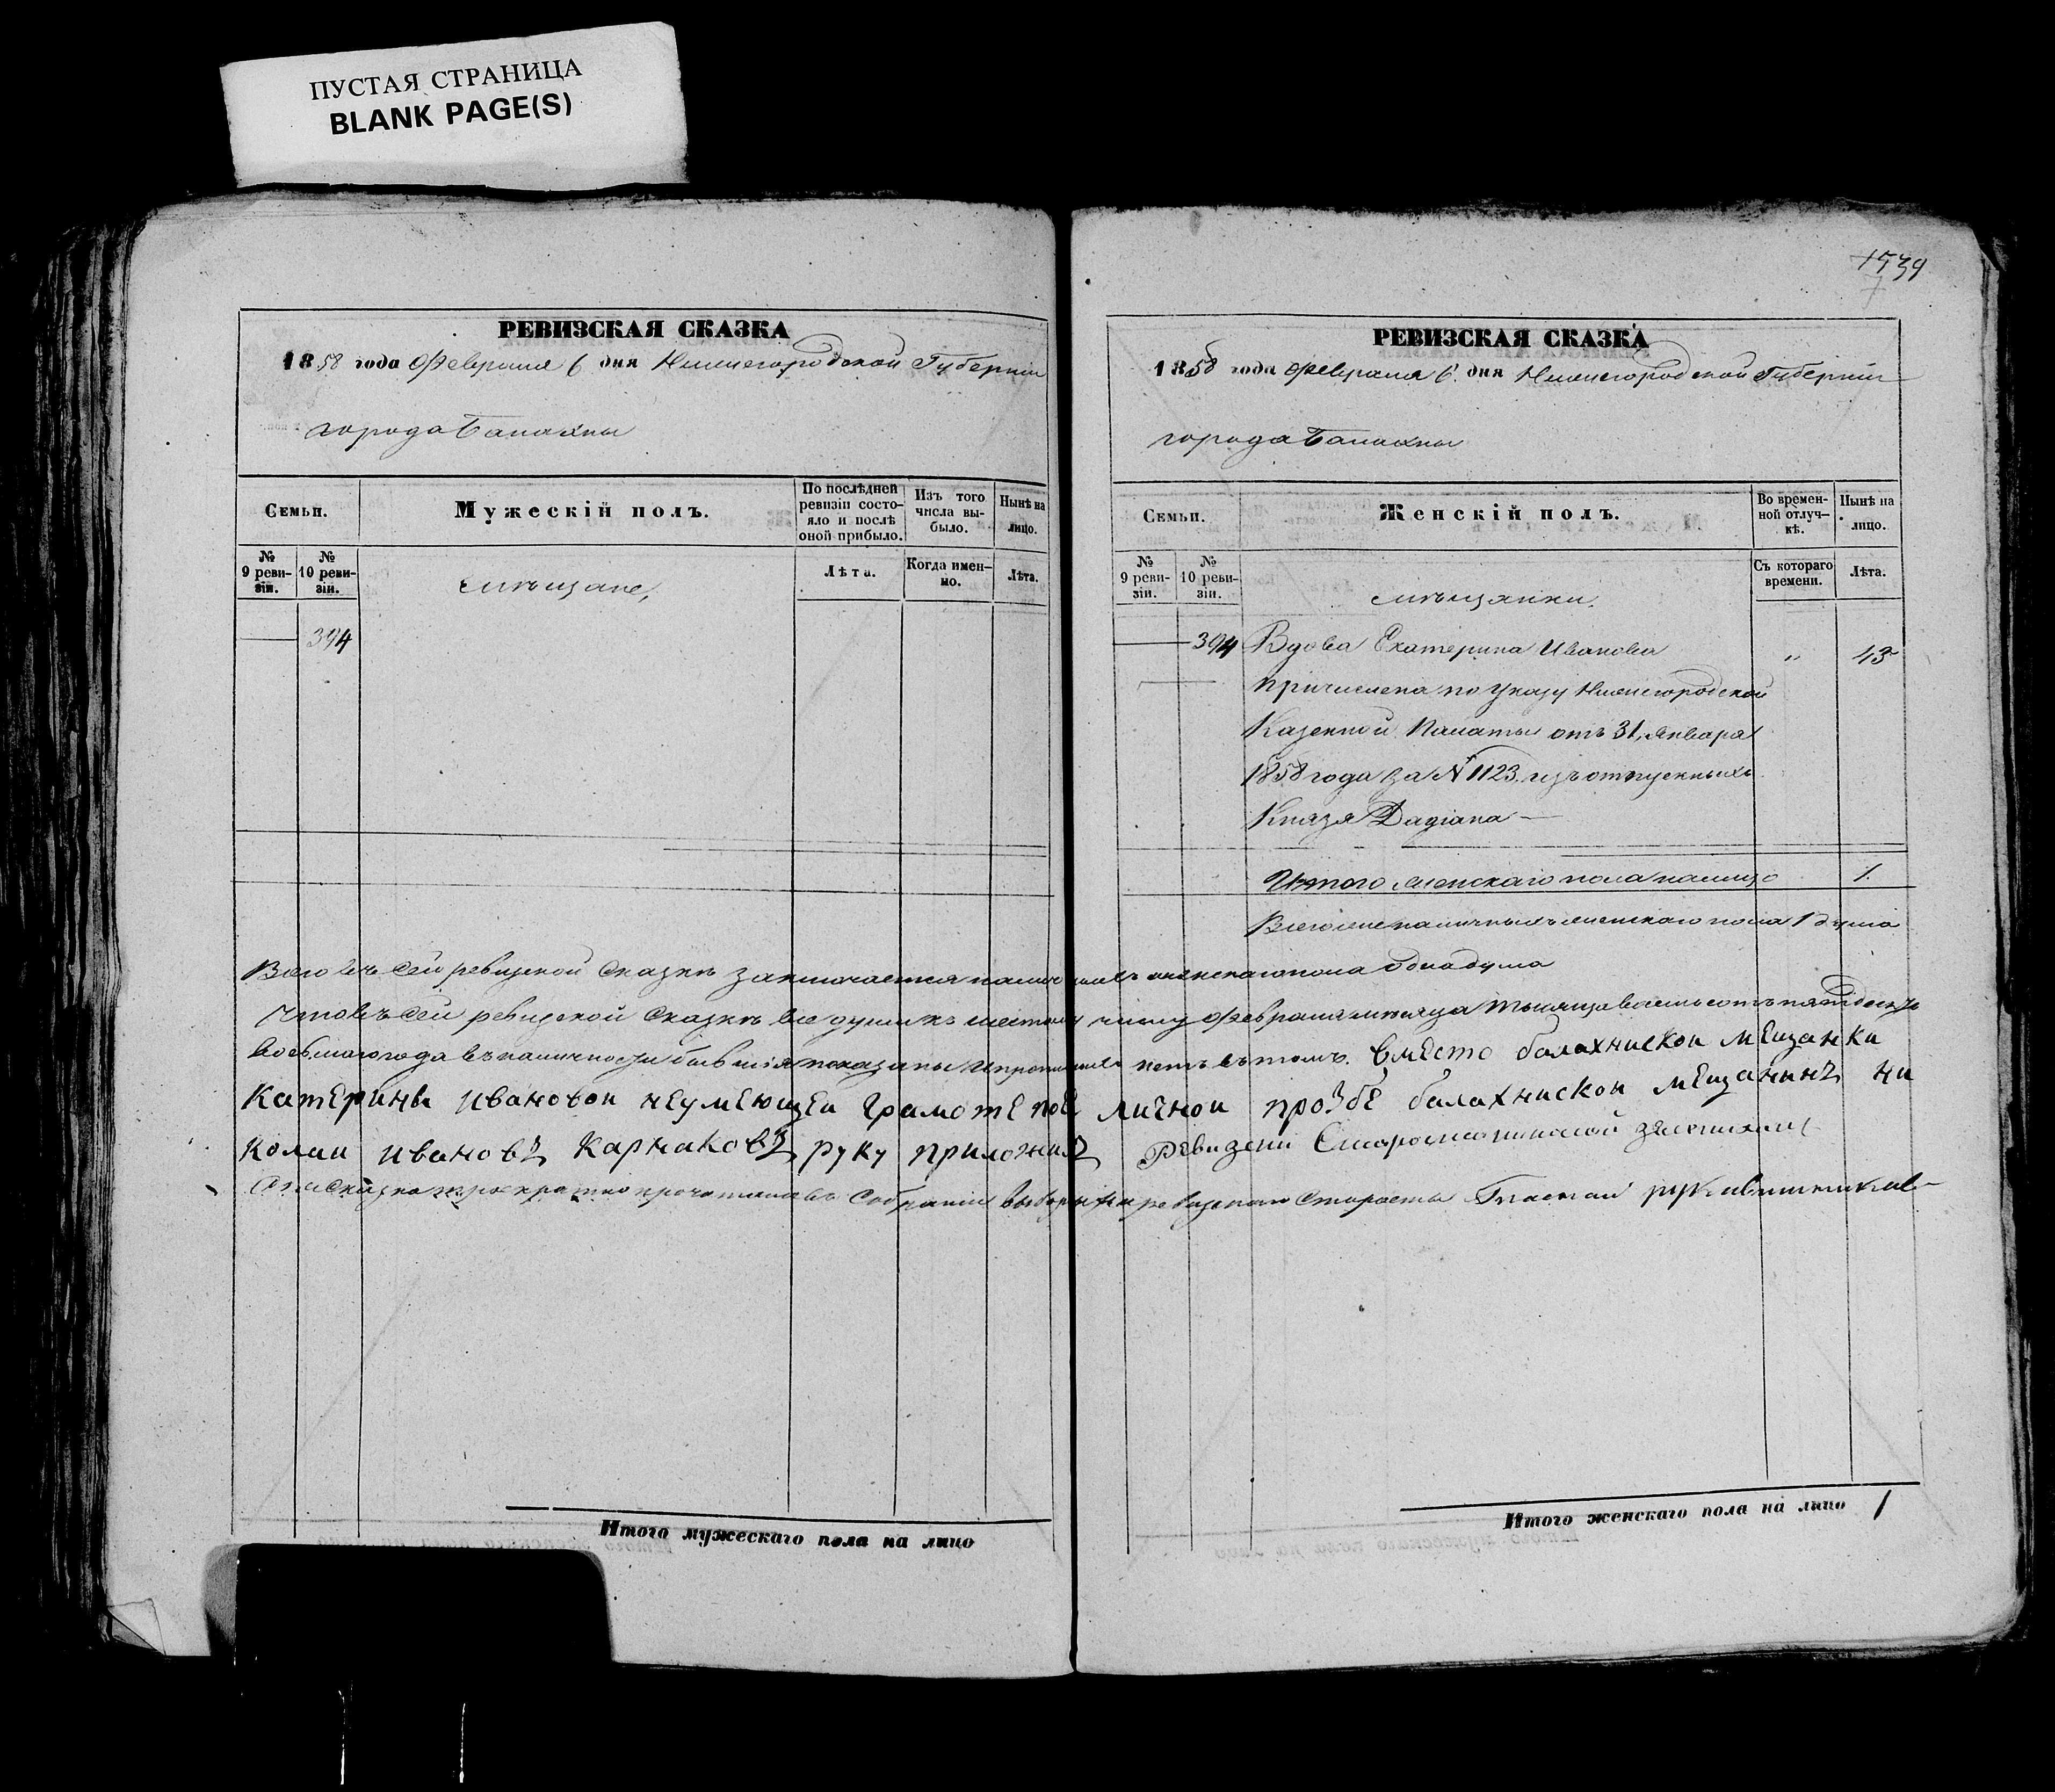 ПУСТАЯ СТРАНИЦА
BLANK PAGE(S)
1539
РЕВИЗСКАЯ СКАЗКА
1858 года Февраля 6 дня Нижегородской Губернии
города Балахны
Семьи.
Мужескій полъ.
По послѣдней ревизіи состояло и послѣ оной прибыло.
Изъ того числа выбыло.
Нынѣ на лицо.
№ 9 ревизіи.
№ 10 ревизіи.
Лѣта.
Когда именно.
Лѣта.
мѣщане,
394
Итого мужескаго пола на лицо
РЕВИЗСКАЯ СКАЗКА
1858 года Февраля 6 дня Нижегородской Губерніи
города Балахны
Семьи.
Женскій полъ.
Во временной отлучкѣ.
Нынѣ на лицо.
№ 9 ревизіи.
№ 10 ревизіи.
Съ котораго времени.
Лѣта.
мѣщанки.
394 Вдова Екатерина Иванова „ 43
причислена по указу Нижегородской
Казенной Палаты отъ 31, Января
1858 года за № 1123. изъ отпущенныхъ
Князя Дадіана
Итого женскаго пола налицо 1.
Всего же наличныхъ женскаго пола 1 душа
Всего въ сей ревизской сказкѣ заключается наличныхъ женскаго пола одна душа
Что въ сей ревизской сказкѣ все души къ шестому числу Февраля мѣсяца тысяща восемьсотъ пятдесятъ
восьмаго года въ наличности бывшія показаны и прописныхъ нетъ въ томъ. вместо балахнискои мещанки
Катерины ивановои неумеющеи грамоте пое личнои прозбе балахнискои мещанинъ ни
колаи ивановъ Карнаковъ руку приложилъ Ревизскій Староста
Сія сказка троекратно прочитана въ Собраніи
Итого женскаго пола на лицо 1